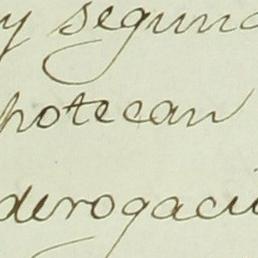 y segund
potecan
derogaci